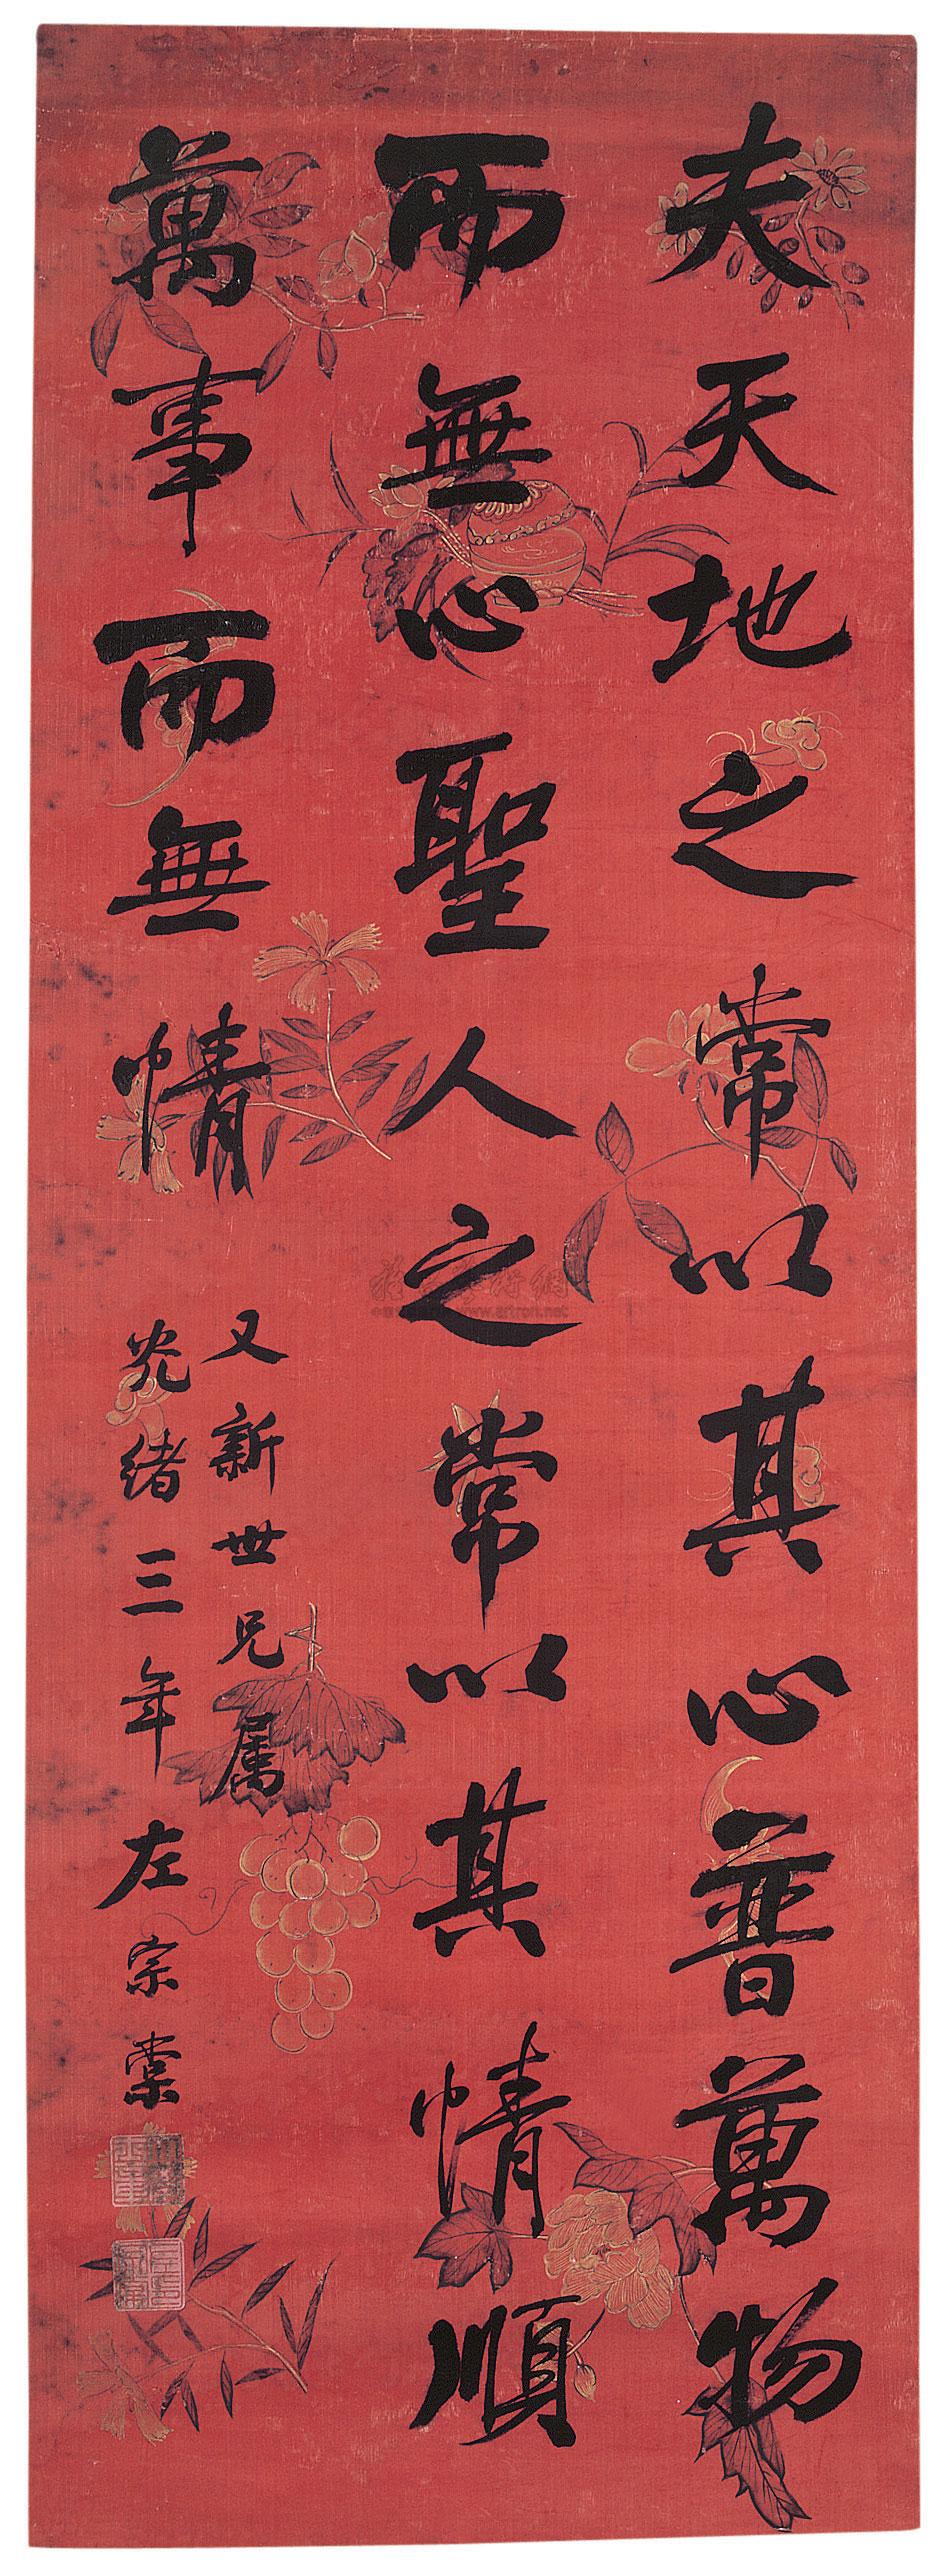 夫天地之常以其心普萬物
而無心聖人之常以其情順
萬事而無情
又新世兄属
光緒三年左宗棠
www.artron.net